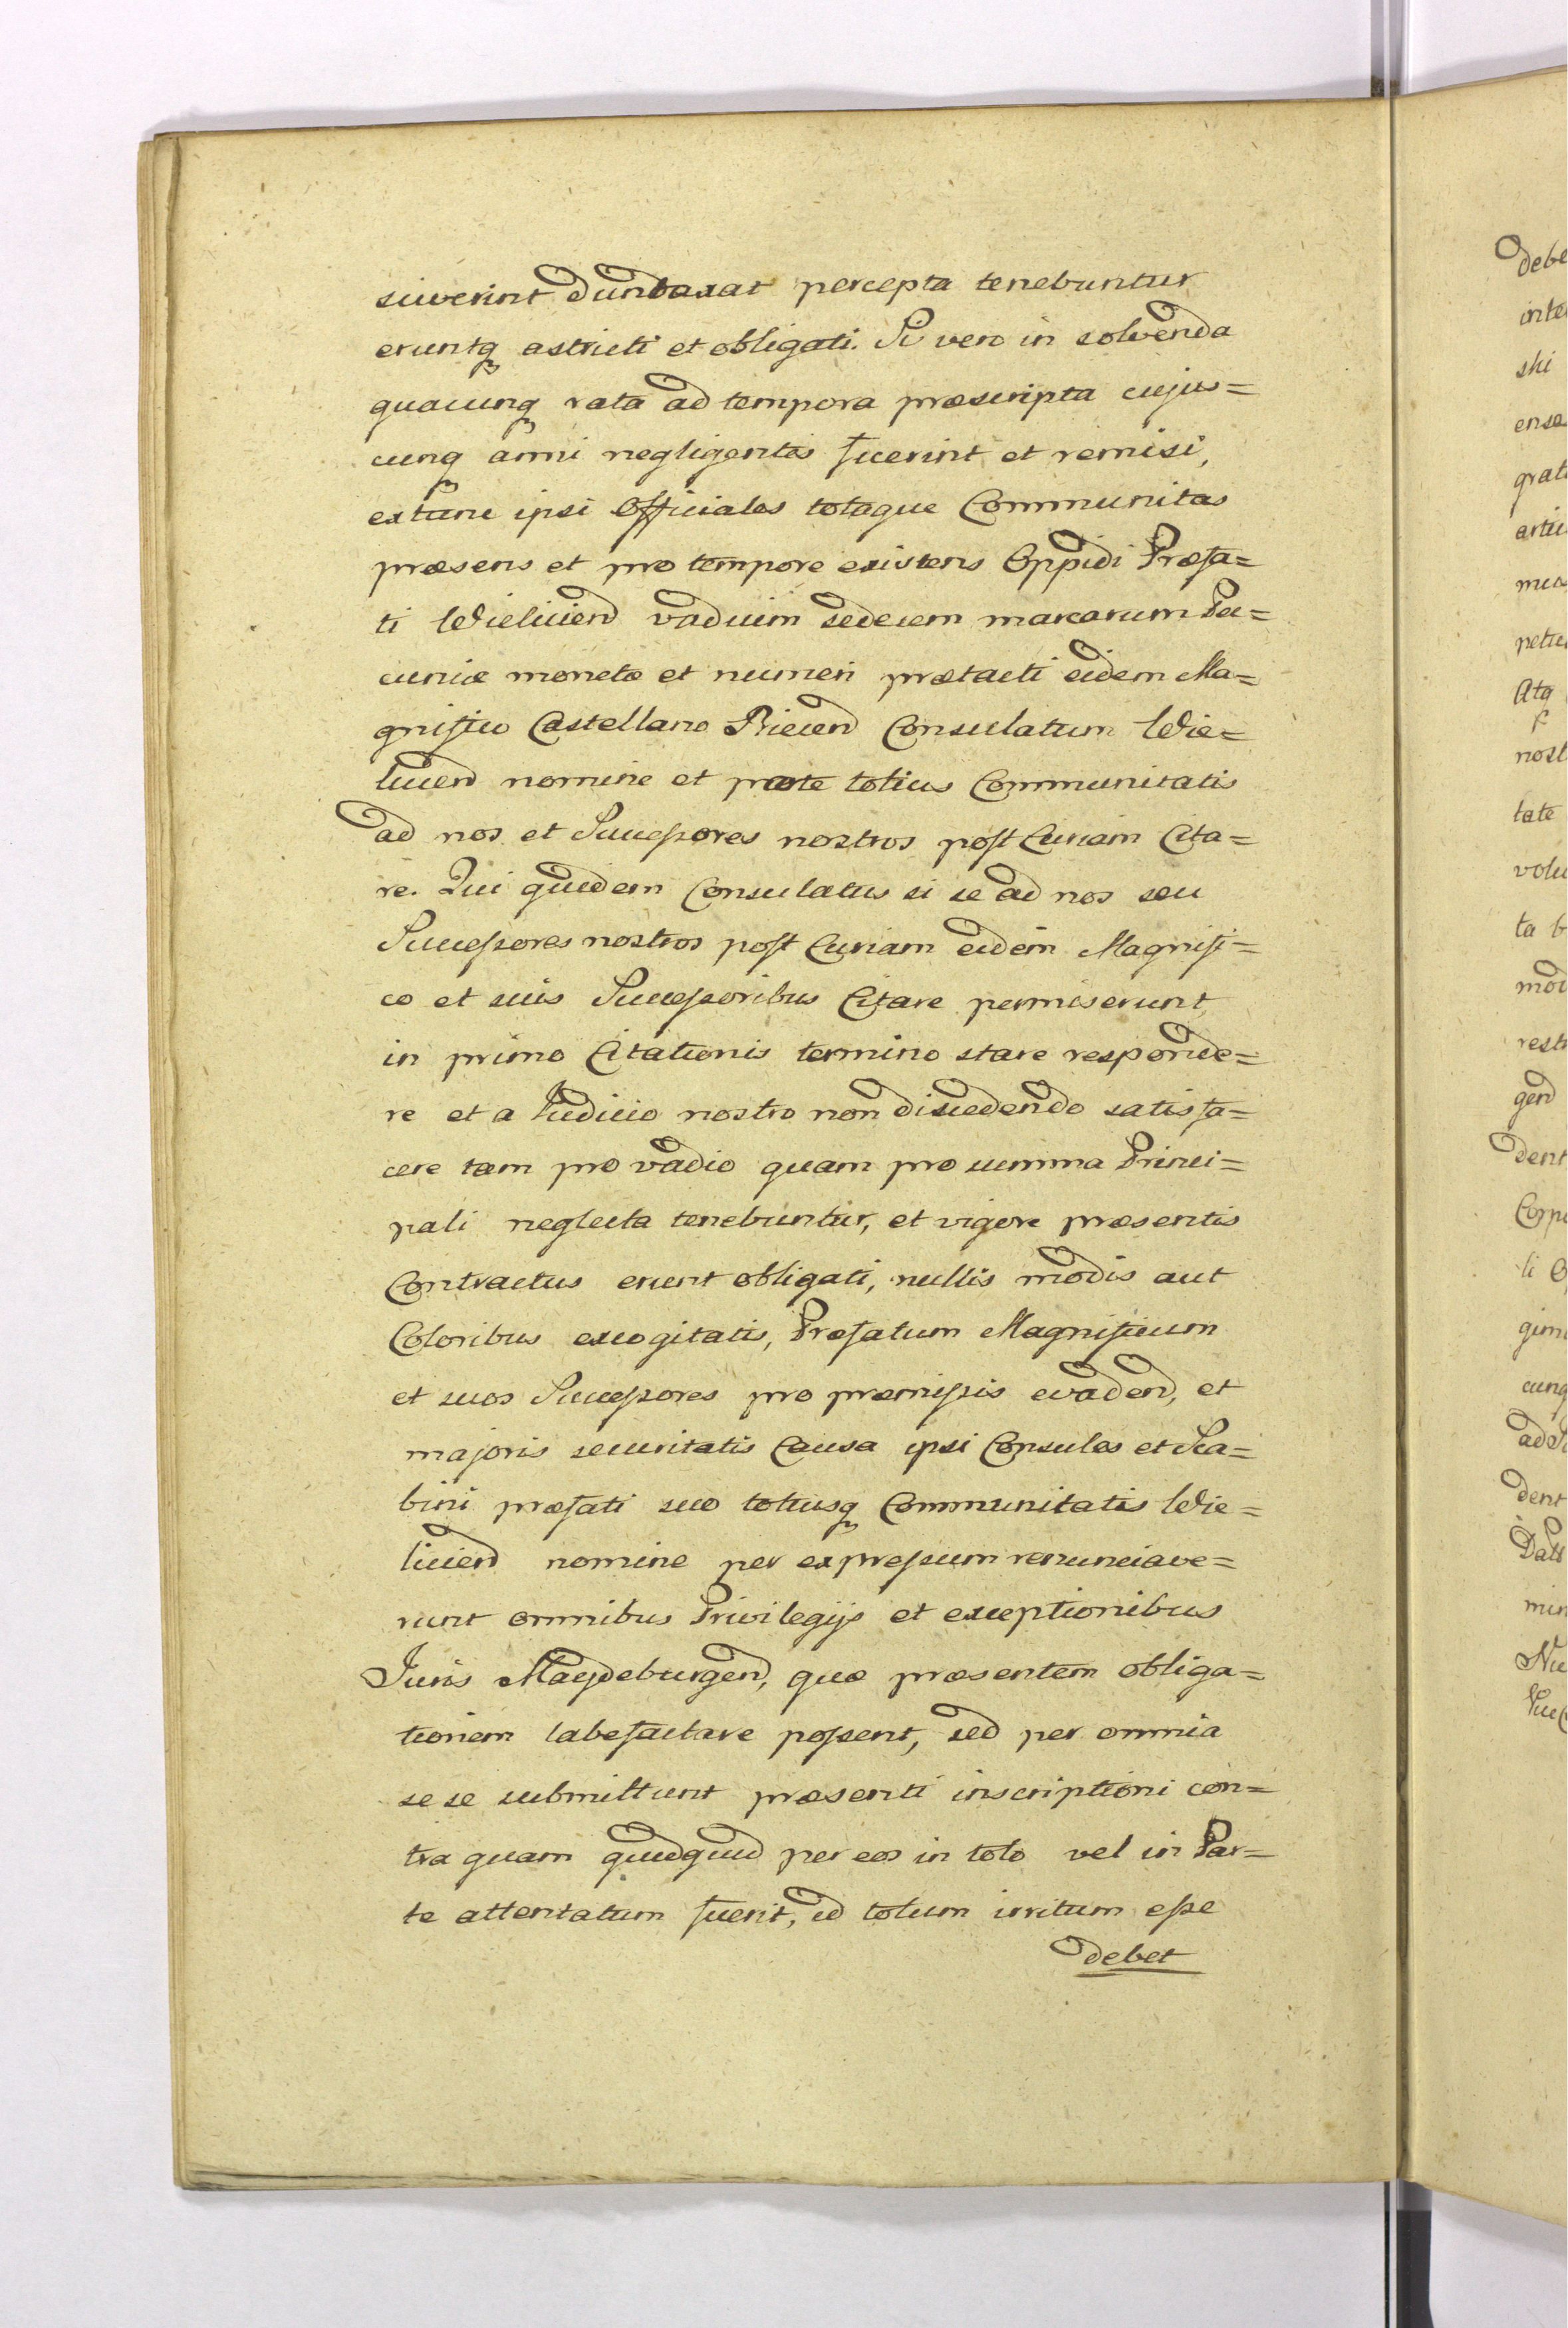 sciverint duntaxat percepta tenebuntur
eruntq astricti et obligati. Si vero in solvenda
quacunq rata ad tempora præscripta cujus=
cunq anni negligentes fuerint et remisi,
extunc ipsi Officiales totaque Communitas
præsens et pro tempore existens Oppidi Præfa=
ti Wieliciend vadium sedecem marcarum Pe=
cuniæ monetæ et numeri prætacti eidem Ma=
gnifico Castellano Biecend Consulatum Wie=
liciend nomine et parte totius Communitatis
ad nos et Successores nostros post Curiam Cita=
re. Qui quidem Consulatus si se ad nos seu
Successores nostros post Curiam eidem Magnifi=
co et suis Successoribus Citare permiserunt,
in primo Citationis termino stare responde=
re et a Iudicio nostro non discedendo satisfa=
cere tam pro vadio quam pro summa Princi=
pali neglecta tenebuntur, et vigore præsentis
Contractus erunt obligati, nullis modis aut
Coloribus excogitatis, Præfatum Magnificum
et suos Successores pro præmissis evadend, et
majoris securitatis Causa ipsi Consules et Sca=
bini præfati suo totiusq Communitatis Wie=
liciend nomine per expressum renunciave=
runt omnibus Privilegijs et exceptionibus
Iuris Maydeburgend, quæ præsentem obliga=
tionem labefactare possent, sed per omnia
se se submittunt præsenti inscriptioni con=
tra quam quidquid per eos in toto vel in Par=
te attentatum fuerit, id totum irritum esse
debet